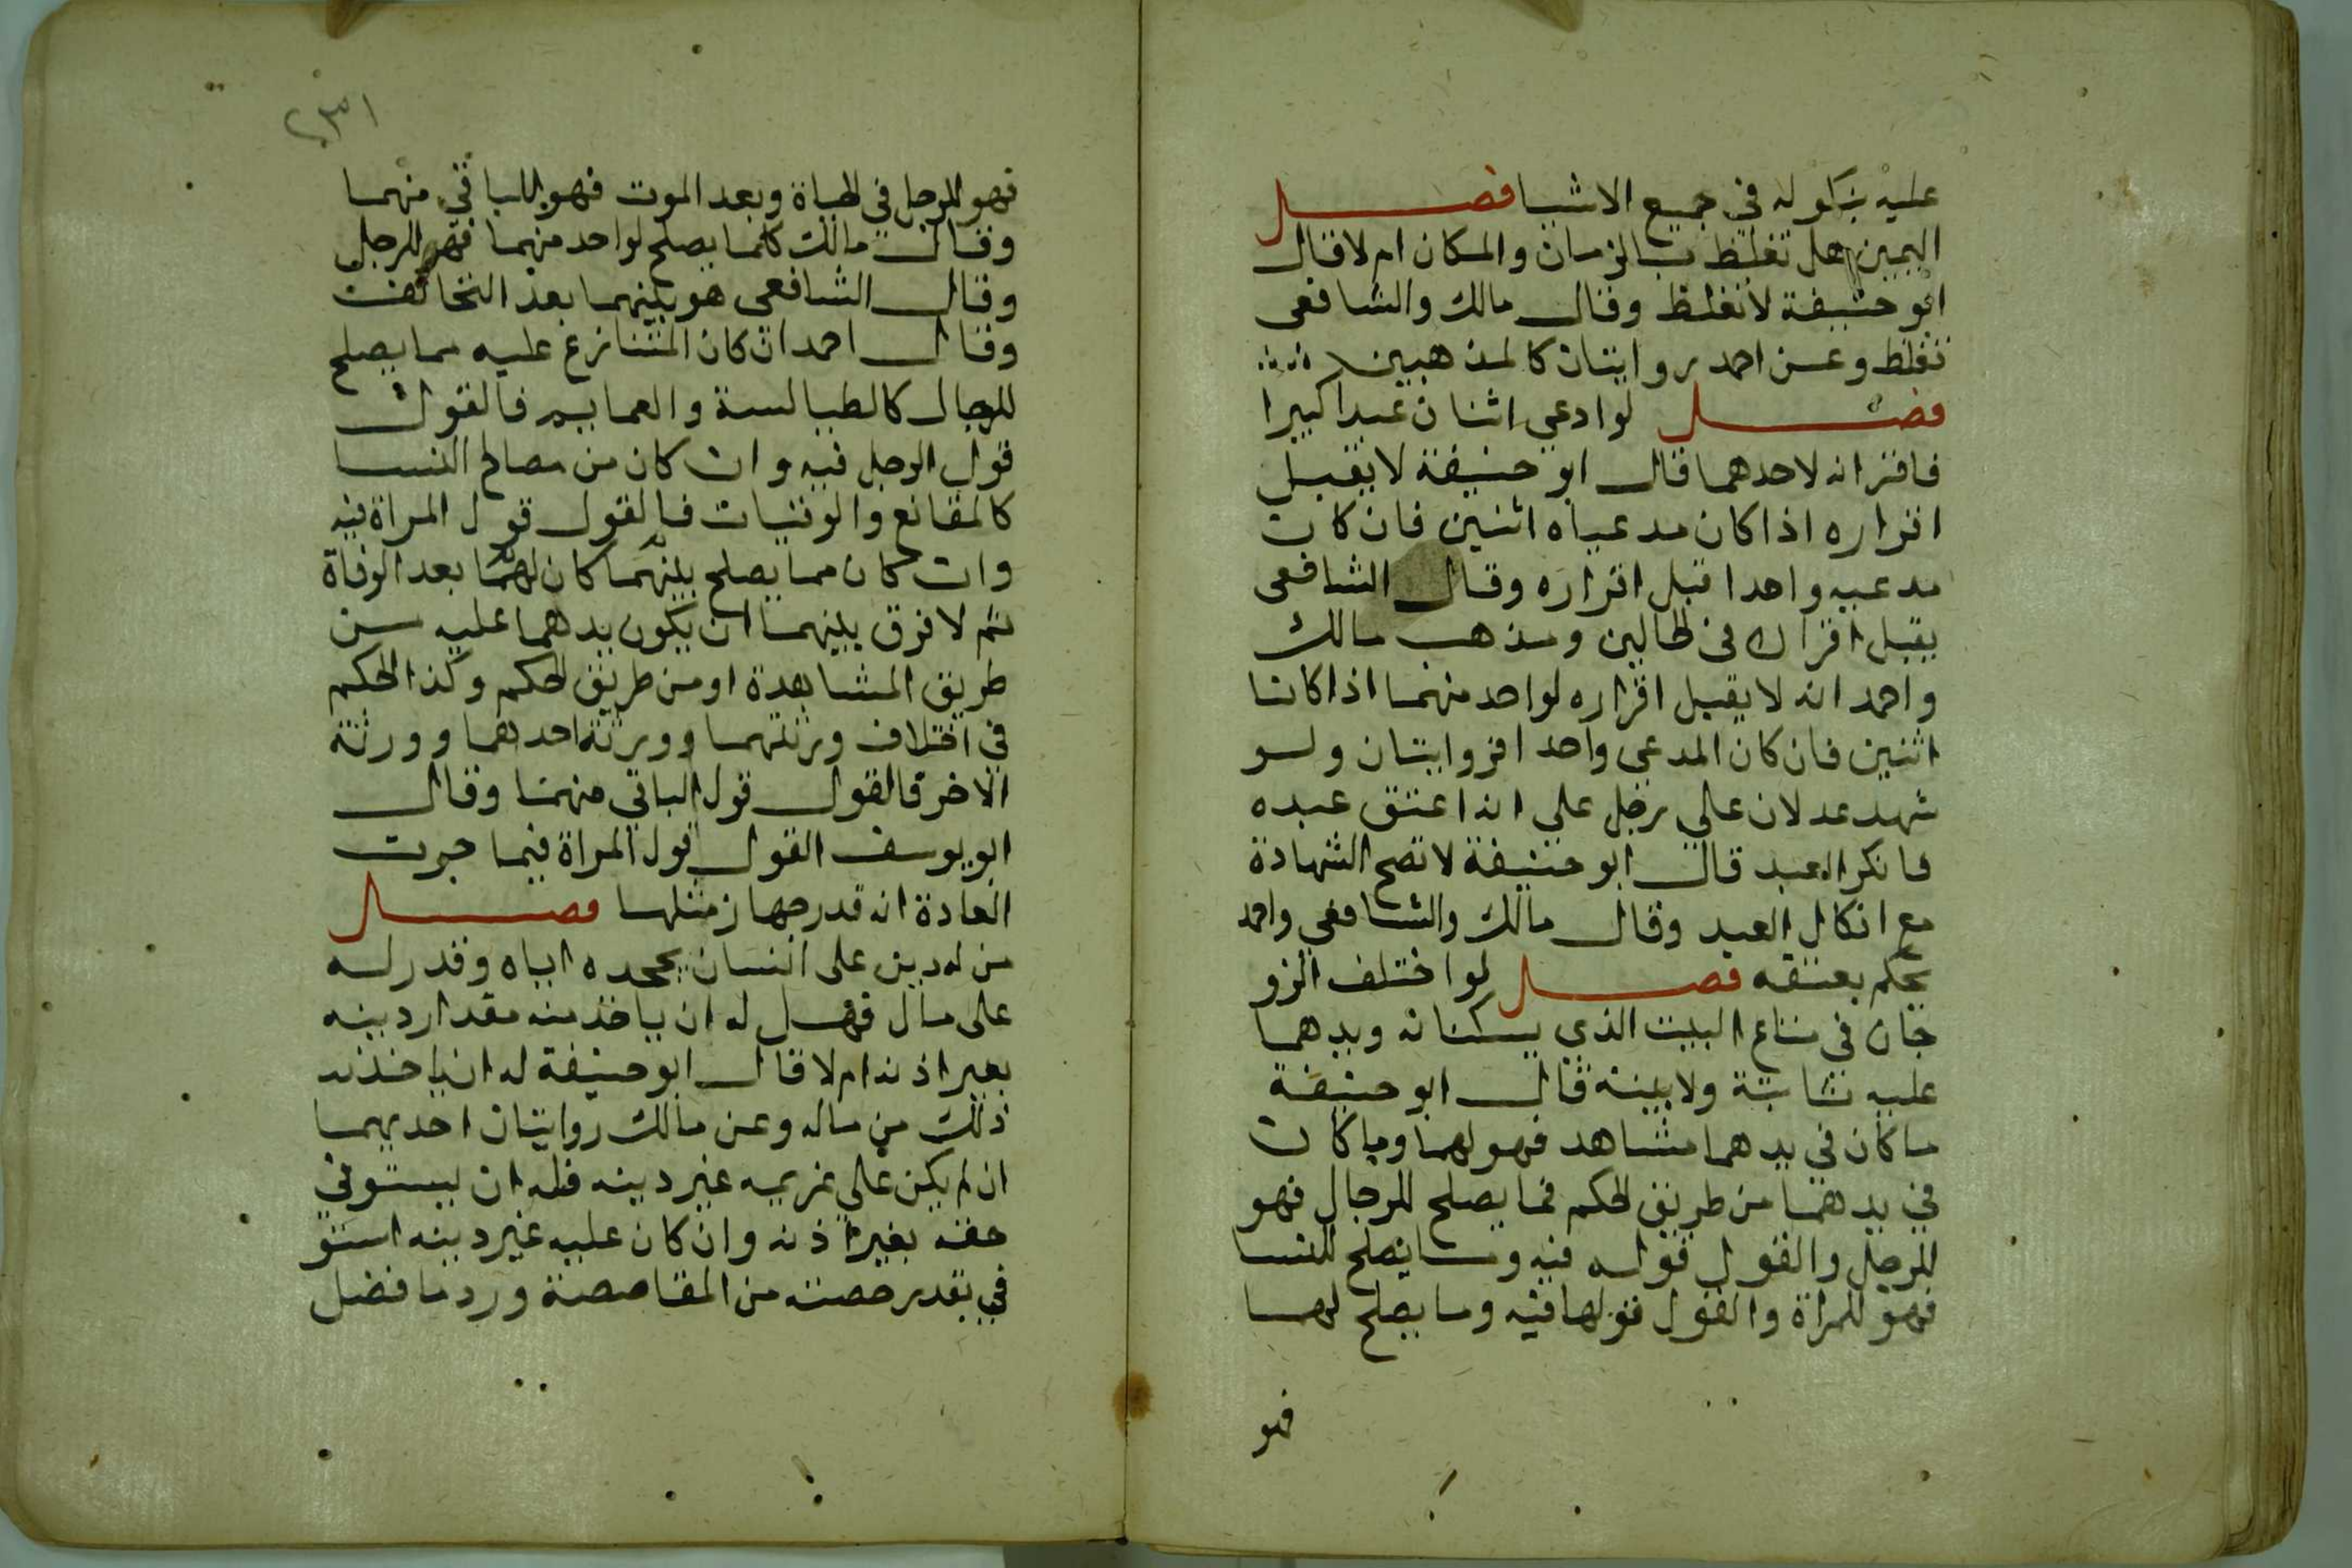 عليه بنكوله في جميع الاشيا فصل
اليمين هل تغلظ بالزمان والمكان ام لا قال
ابو حنيفة لا تغلظ وقال مالك والشافعى
تغلظ وعن احمد روايتان كالمذهبين
فصل لو ادعى اثنان عبدا كبيرا
فاقر انه لاحدهما قال ابو حنيفة لا يقبل
اقراره اذا كان مدعياه اثنين فان كان
مدعيه واحدا قبل اقراره وقال الشافعى
يقبل اقراره فى الحالين ومذهب مالك
واحمد انه لا يقبل اقراره لواحد منهما اذا كانا
اثنين فان كان المدعى واحد افروايتان ولو
شهد عدلان على رجل على انه اعتق عبده
فانكر العبد قال ابو حنيفة لا تصح الشهادة
مع انكار العبد وقال مالك والشافعي واحمد
يحكم بعتقه فصل لو اختلف الزو
جان في متاع البيت الذي يسكنانه ويدهما
عليه ثابتة ولا بينة قال ابو حنيفة
ما كان في يدهما مشاهد فهو لهما وما كان
في يدهما من طريق الحكم فما يصلح للرجال فهو
للرجل والقول قوله فيه وما يصلح للنسا
فهو للمراة والقول قولها فيه وما يصلح لهما
فهو
٢٣١
فهو للرجل في الحياة وبعد الموت فهو للباقي منهما
وقال مالك كلما يصلح لواحد منهما فهو للرجل
وقال الشافعى هو بينهما بعد التحالف
وقال احمد ان كان المتنازع عليه مما يصلح
للرجال كالطيالسة والعمايم فالقول
قول الرجل فيه وان كان من مصالح النسا
كالمقانع والوقنيات فالقول قول المراة فيه
وان كان مما يصلح بينهما كان لهما بعد الوفاة
ثم لا فرق بينهما ان يكون يدهما عليه من
طريق المشاهدة او من طريق الحكم وكذا الحكم
في اختلاف ورثتهما وورثة احدهما وورثة
الاخر فالقول قول الباقي منهما وقال
ابو يوسف القول قول المراة فيما جرت
العادة انه قدر جهاز مثلها فصل
من له دين على انسان يجحده اياه وقدر له
على مال فهل له ان ياخذ منه مقدار دينه
بغير اذنه ام لا قال ابو حنيفة له ان ياخذ
ذلك من ماله وعن مالك روايتان احديهما
ان لم يكن على غريمه غير دينه فله ان يستوفي
حقه بغير اذنه وان كان عليه غير دينه استو
في بقدر حصته من المقاصصة ورد ما فضل